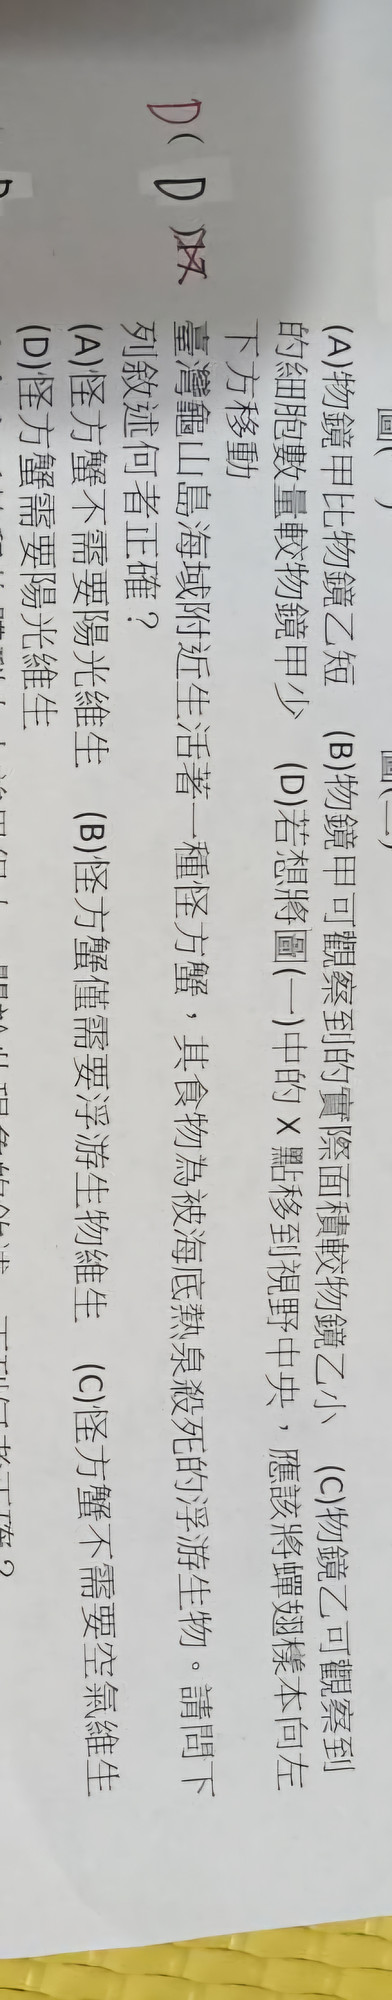 圖(一)
(A)物鏡甲比物鏡乙短 (B)物鏡甲可觀察到的實際面積較物鏡乙小 (C)物鏡乙可觀察到
的細胞數量較物鏡甲少 (D)若想將圖(一)中的 X 點移到視野中央，應該將蟬翅樣本向左
下方移動
D( D )
臺灣龜山島海域附近生活著一種怪方蟹，其食物為被海底熱泉殺死的浮游生物。請問下
列敘述何者正確？
(A)怪方蟹不需要陽光維生 (B)怪方蟹僅需要浮游生物維生 (C)怪方蟹不需要空氣維生
(D)怪方蟹需要陽光維生